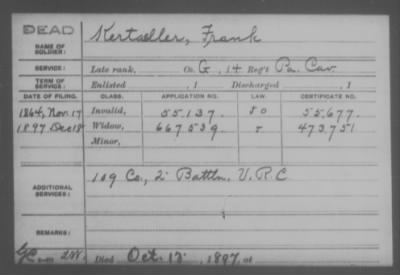 DEAD
NAME OF SOLDIER: Kertseller, Frank
SERVICE: Late rank, Co. G, 14 Reg't Pa. Cav.
TERM OF SERVICE: Enlisted , 1 Discharged , 1
DATE OF FILING. CLASS. APPLICATION NO. LAW. CERTIFICATE NO.
1864, Nov. 17 Invalid, 55.137. 55677.
1897 Dec 18 Widow, 667539. 473751
Minor,
ADDITIONAL SERVICES: 109 Co., 2" Battln. V.R.C
REMARKS:
Died Oct. 12, 1897, at